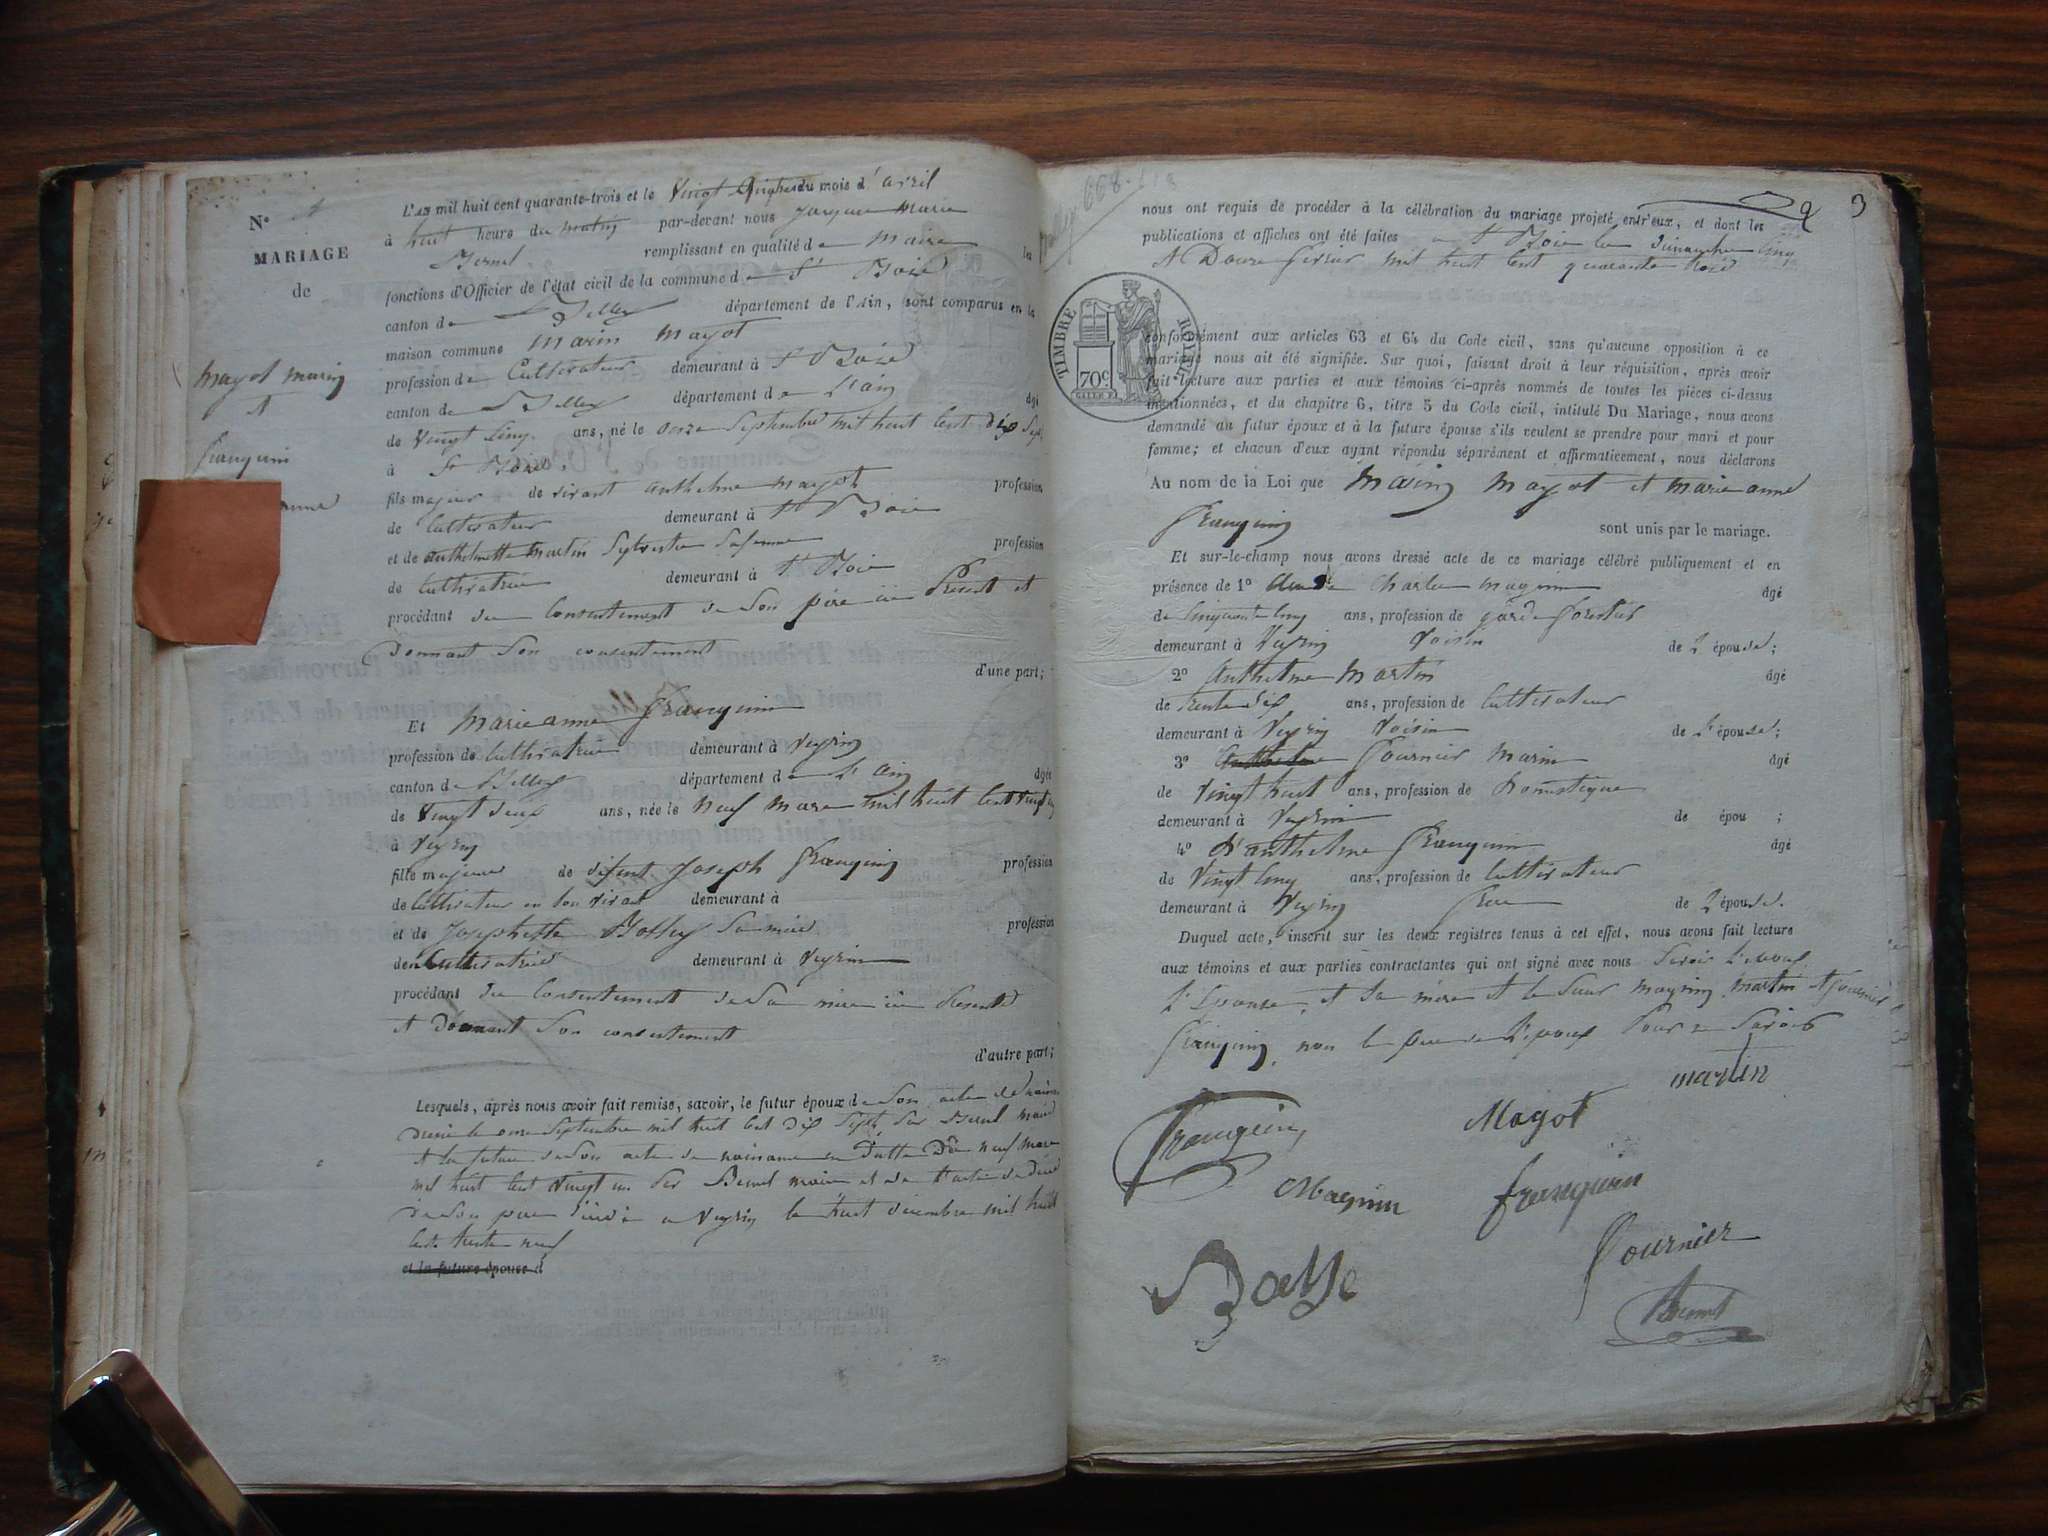 N° 1
MARIAGE
de
Mayot Marin
et
franquin
anne
L'an mil huit cent quarante-trois et le vingt du mois d'avril
à huit heure du matin par-devant nous Jacques Marie
Bernel remplissant en qualité de Maire les
fonctions d'Officier de l'état civil de la commune de St Boïs
canton de Belley département de l'Ain, sont comparus en la
maison commune Marin Mayot
profession de Cultivateur demeurant à St Bois
canton de Belley département de L'ain âgé
de vingt cinq ans, né le onze Septembre mil huit cent dix Sept
à St Bois
fils majeur de vivant anthelme mayot profession
de Cultivateur demeurant à St Bois
et de anthelmette martin Sylvestre Sa femme profession
de Cultivatrice demeurant à St Bois
procédant du Consentement de Son père ici Présent et
Donnant Son consentement
d'une part;
Et Marie anne franquin
profession de Cultivatrice demeurant à Veyrin
canton de Belley département de L'ain âgée
de Vingt deux ans, née le neuf mars mil huit cent vingt un
à Veyrin
fille majeure de défunt Joseph franquin profession
de Cultivateur en Son vivant demeurant à
et de Josephette Sa mère profession
de Cultivatrice demeurant à Veyrin
procédant du Consentement de Sa mère ici Présente
et Donnant Son consentement
d'autre part;
Lesquels, après nous avoir fait remise, savoir, le futur époux de Son acte de naissance
Dressé le onze Septembre mil huit cent dix Sept par Bernel maire
et la future de Son acte de naissance en Datte Du neuf mars
mil huit cent vingt un Par Bernel maire et de l'acte de Décès
de Son père Décédé a Veyrin le huit décembre mil huit
cent trente neuf
et la future épouse d
668
2 3
nous ont requis de procéder à la célébration du mariage projeté entr'eux, et dont les
publications et affiches ont été faites a St Bois les Dimanche cinq
et Douze février mil huit cent quarante trois
TIMBRE ROYAL
70c
conformément aux articles 63 et 64 du Code civil, sans qu'aucune opposition à ce
mariage nous ait été signifiée. Sur quoi, faisant droit à leur réquisition, après avoir
fait lecture aux parties et aux témoins ci-après nommés de toutes les pièces ci-dessus
mentionnées, et du chapitre 6, titre 5 du Code civil, intitulé Du Mariage, nous avons
demandé au futur époux et à la future épouse s'ils veulent se prendre pour mari et pour
femme; et chacun d'eux ayant répondu séparément et affirmativement, nous déclarons
Au nom de la Loi que Marin Mayot et Marie anne
franquin sont unis par le mariage.
Et sur-le-champ nous avons dressé acte de ce mariage célébré publiquement et en
présence de 1° Charles Magnin âgé
de Cinquante cinq ans, profession de garde forestier
demeurant à Veyrin voisin de L'épouse;
2° Anthelme Martin âgé
de trente dix ans, profession de Cultivateur
demeurant à Veyrin Voisin de L'épouse;
3° Fournier Marin âgé
de Vingt huit ans, profession de Domestique
demeurant à Veyrin de épou ;
4° anthelme franquin âgé
de Vingt cinq ans, profession de Cultivateur
demeurant à Veyrin frere de L'épouse.
Duquel acte, inscrit sur les deux registres tenus à cet effet, nous avons fait lecture
aux témoins et aux parties contractantes qui ont signé avec nous Savoir L'époux
L'Epouse, et Sa mère et le Sieur Magnin, Martin et fournier
franquin non le père de L'époux Pour ne Savoir
martin
franquin
Mayot
Magnin franquin
fournier
Bernel